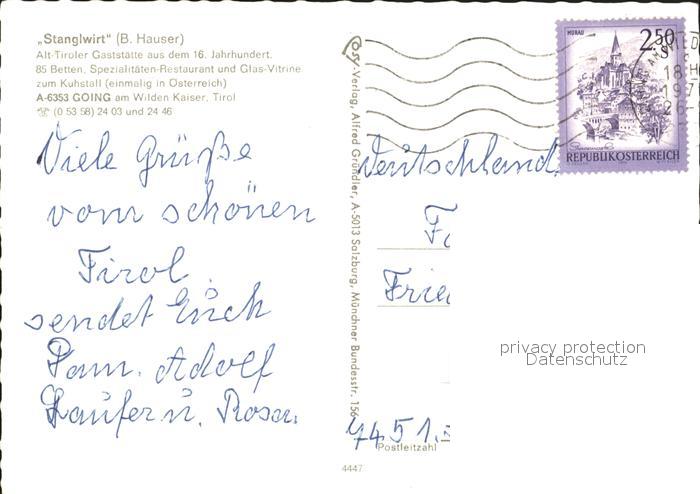 „Stanglwirt" (B. Hauser)
Alt-Tiroler Gaststätte aus dem 16. Jahrhundert.
85 Betten, Spezialitäten-Restaurant und Glas-Vitrine
zum Kuhstall (einmalig in Österreich)
A-6353 GOING am Wilden Kaiser, Tirol
☏ (0 53 58) 24 03 und 24 46
Viele Grüße
vom schönen
Tirol
sendet Euch
Fam. Adolf
Laufer u. Rosa
Cosy-Verlag, Alfred Gründler, A-5013 Salzburg, Münchner Bundesstr. 156
MURAU
2.50
S
REPUBLIK ÖSTERREICH
Deutschland
Frie
7451
Postleitzahl
4447
privacy protection
Datenschutz